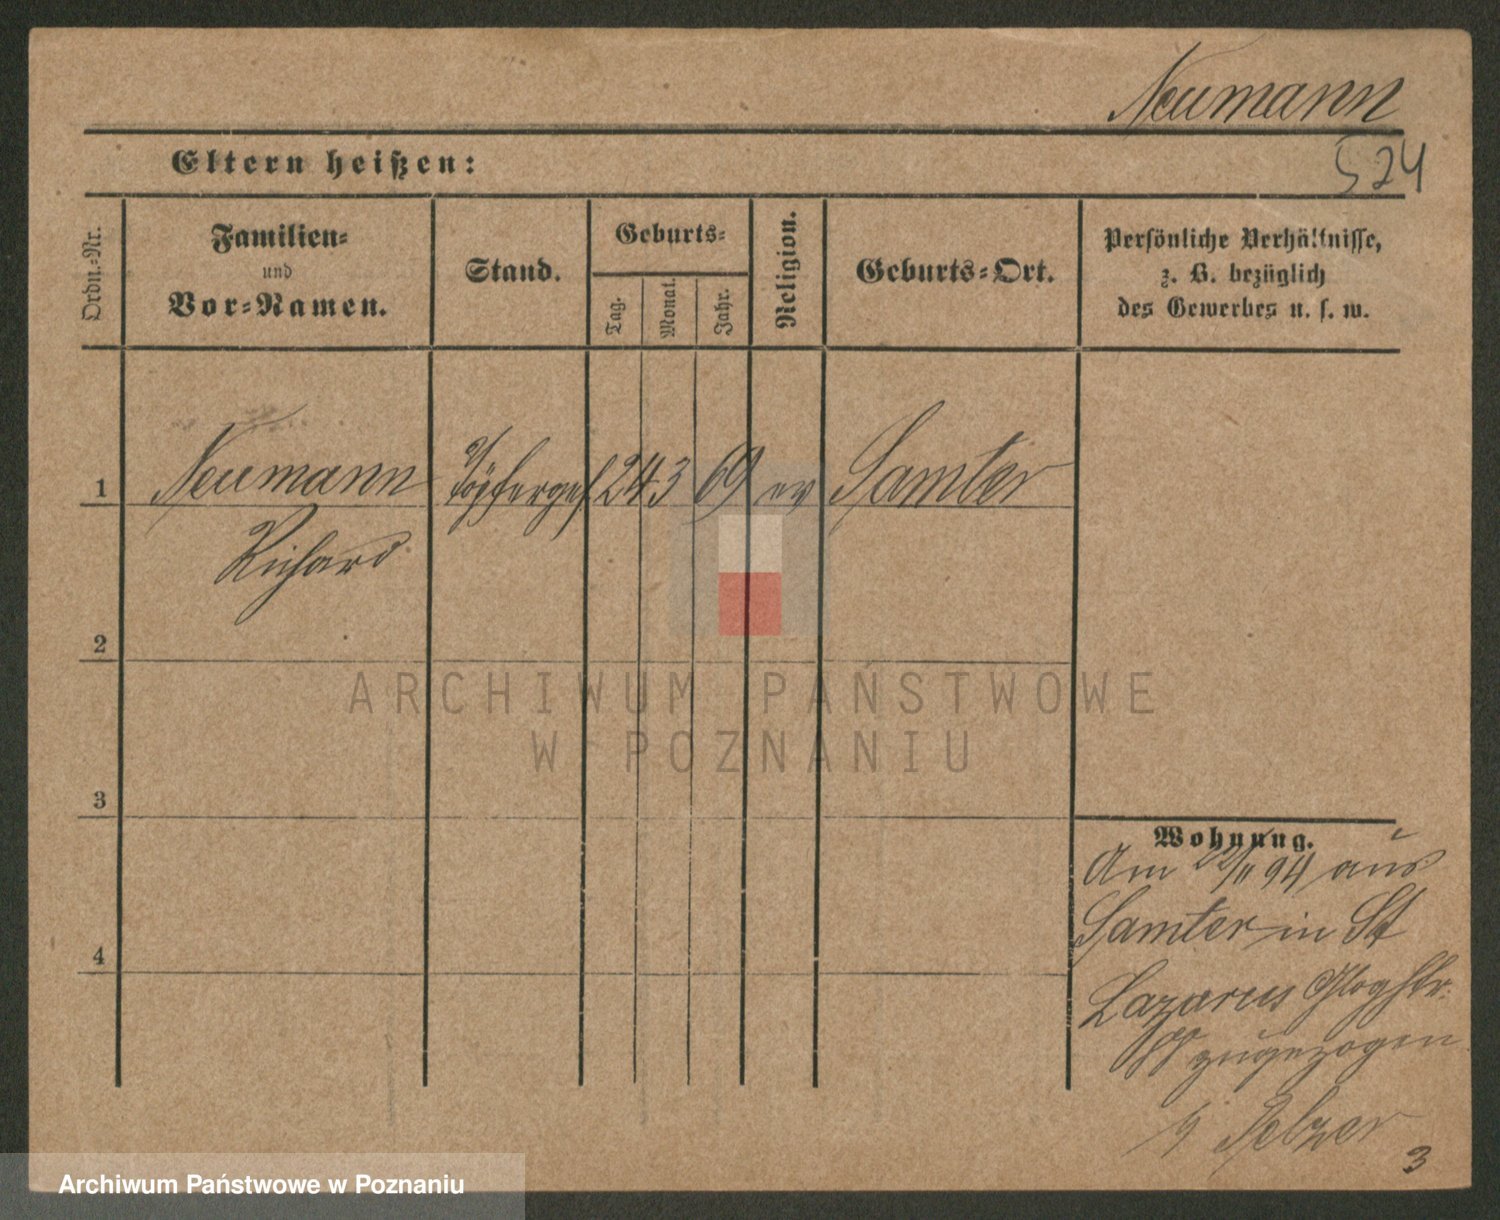 Neumann
524
Eltern heißen:
Ordn.-Nr.
Familien-
und
Vor-Namen.
Stand.
Geburts-
Tag.
Monat.
Jahr.
Religion.
Geburts-Ort.
Persönliche Verhältnisse,
z. B. bezüglich
des Gewerbes u. s. w.
1 Neumann Töpferges 24 3 69 ev Samter
Richard
2
ARCHIWUM PAŃSTWOWE
W POZNANIU
3
Wohnung.
Am 22/11 94 aus
Samter in St
Lazarus Glogstr.
zugezogen
4
3
Archiwum Państwowe w Poznaniu